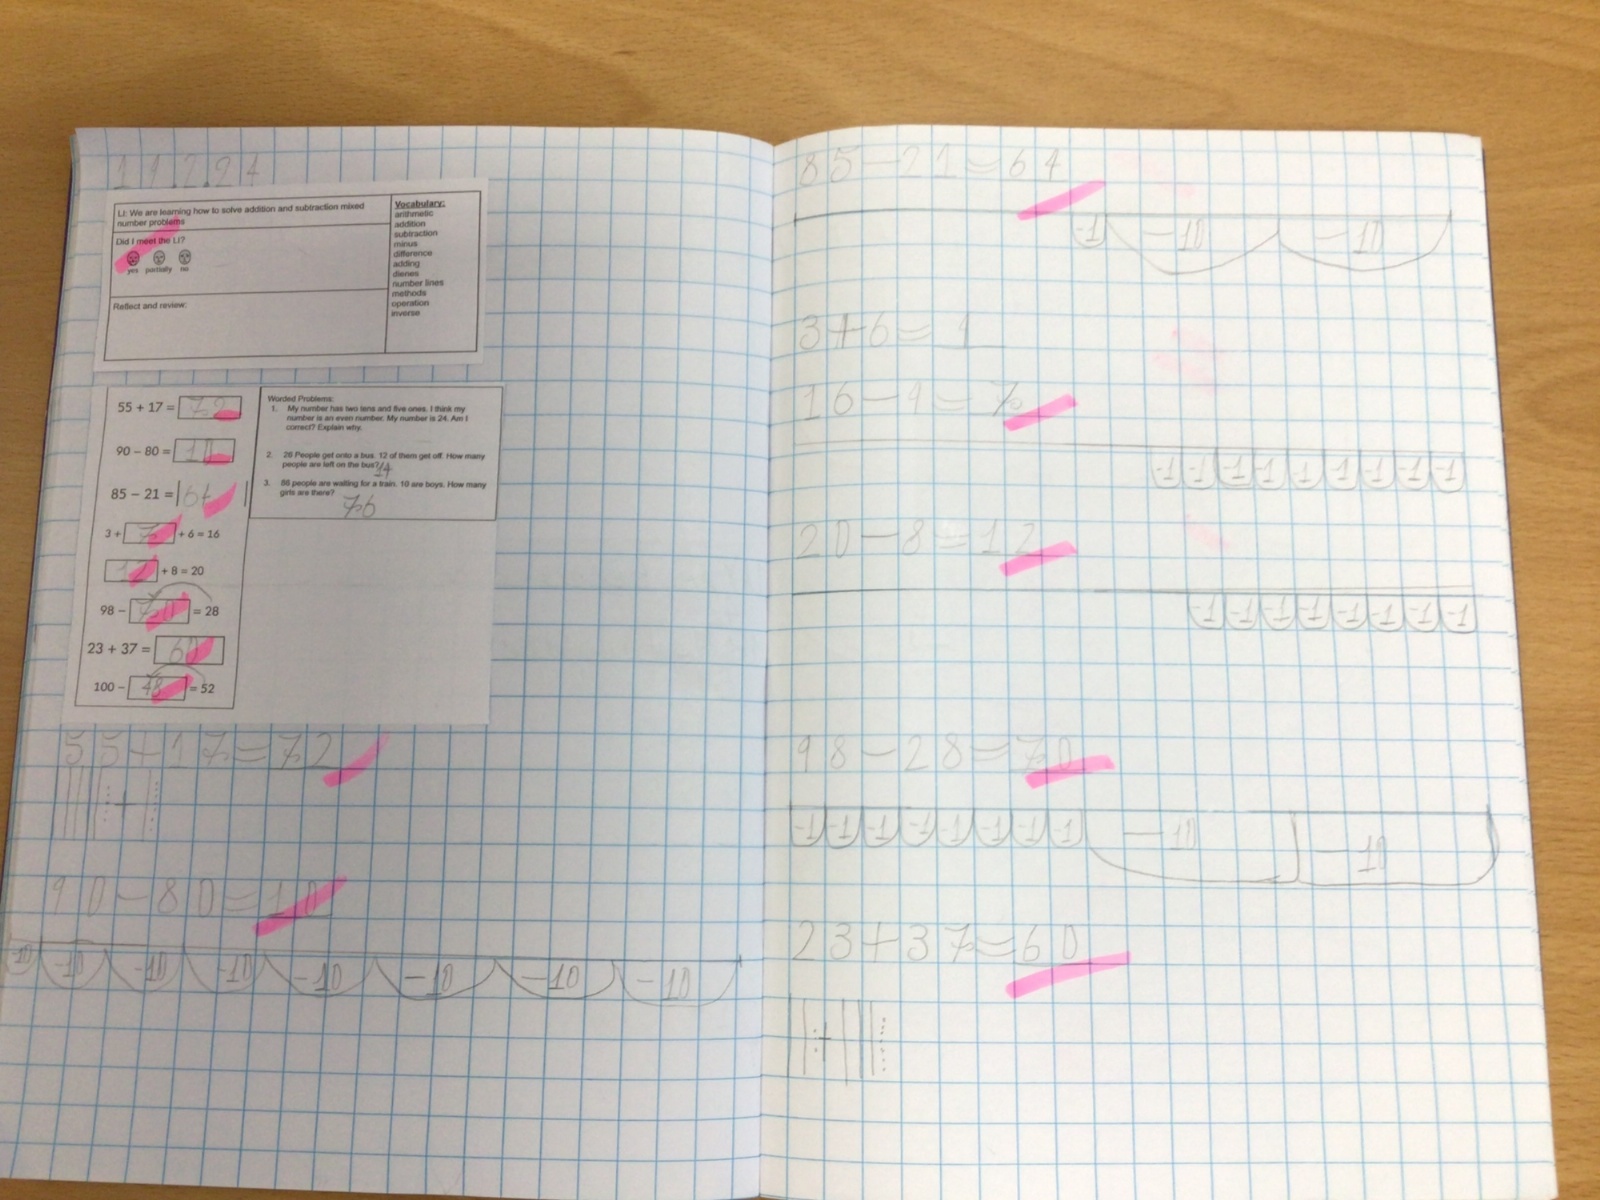 11.2.24
LI: We are learning how to solve addition and subtraction mixed
number problems
Did I meet the LI?
yes partially no
Reflect and review:
Vocabulary:
arithmetic
addition
subtraction
minus
difference
adding
dienes
number lines
methods
operation
inverse
55 + 17 = 72
90 – 80 = 10
85 – 21 = 64
3 + 7 + 6 = 16
12 + 8 = 20
98 – 70 = 28
23 + 37 = 60
100 – 48 = 52
Worded Problems:
1. My number has two tens and five ones. I think my
number is an even number. My number is 24. Am I
correct? Explain why.
2. 26 People get onto a bus. 12 of them get off. How many
people are left on the bus? 14
3. 86 people are waiting for a train. 10 are boys. How many
girls are there?
76
55+17=72
+
90-80=10
-10 -10 -10 -10 -10 -10 -10 -10
85-21=64
-1 -10 -10
3+6=9
16-9=7
-1 -1 -1 -1 -1 -1 -1 -1 -1
20-8=12
-1 -1 -1 -1 -1 -1 -1 -1
98-28=70
-1 -1 -1 -1 -1 -1 -1 -1 -10 -10
23+37=60
+